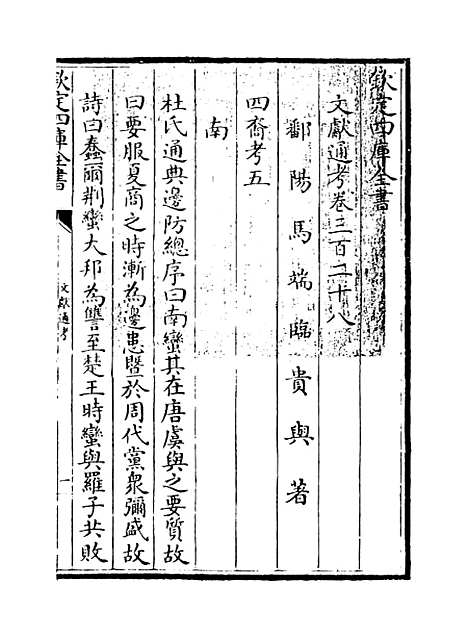 欽定四庫全書
文獻通考卷三百二十八
鄱陽馬端臨貴與著
四裔考五
南
杜氏通典邊防總序曰南蠻其在唐虞與之要質故
曰要服夏商之時漸為邊患暨於周代黨衆彌盛故
詩曰蠢爾荆蠻大邦為讐至楚王時蠻與羅子共敗
欽定四庫全書
文獻通考
一